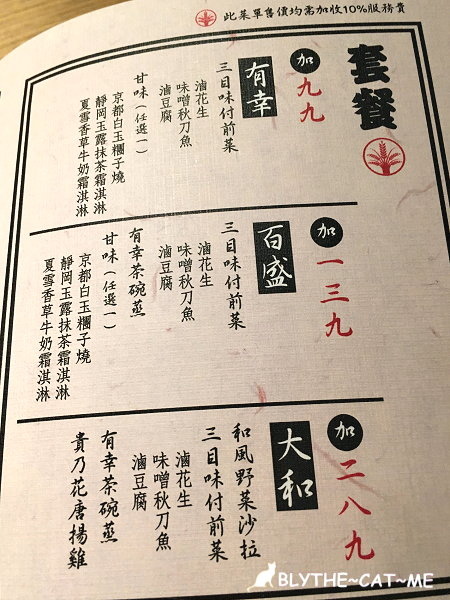 此菜單售價均需加收10%服務費
套餐
加九九
有幸
三目味付前菜
滷花生
味噌秋刀魚
滷豆腐
甘味（任選一）
京都白玉糰子燒
靜岡玉露抹茶霜淇淋
夏雪香草牛奶霜淇淋
加一三九
百盛
三目味付前菜
滷花生
味噌秋刀魚
滷豆腐
有幸茶碗蒸
甘味（任選一）
京都白玉糰子燒
靜岡玉露抹茶霜淇淋
夏雪香草牛奶霜淇淋
加二八九
大和
和風野菜沙拉
三目味付前菜
滷花生
味噌秋刀魚
滷豆腐
有幸茶碗蒸
貴乃花唐揚雞
BLYTHE~CAT~ME